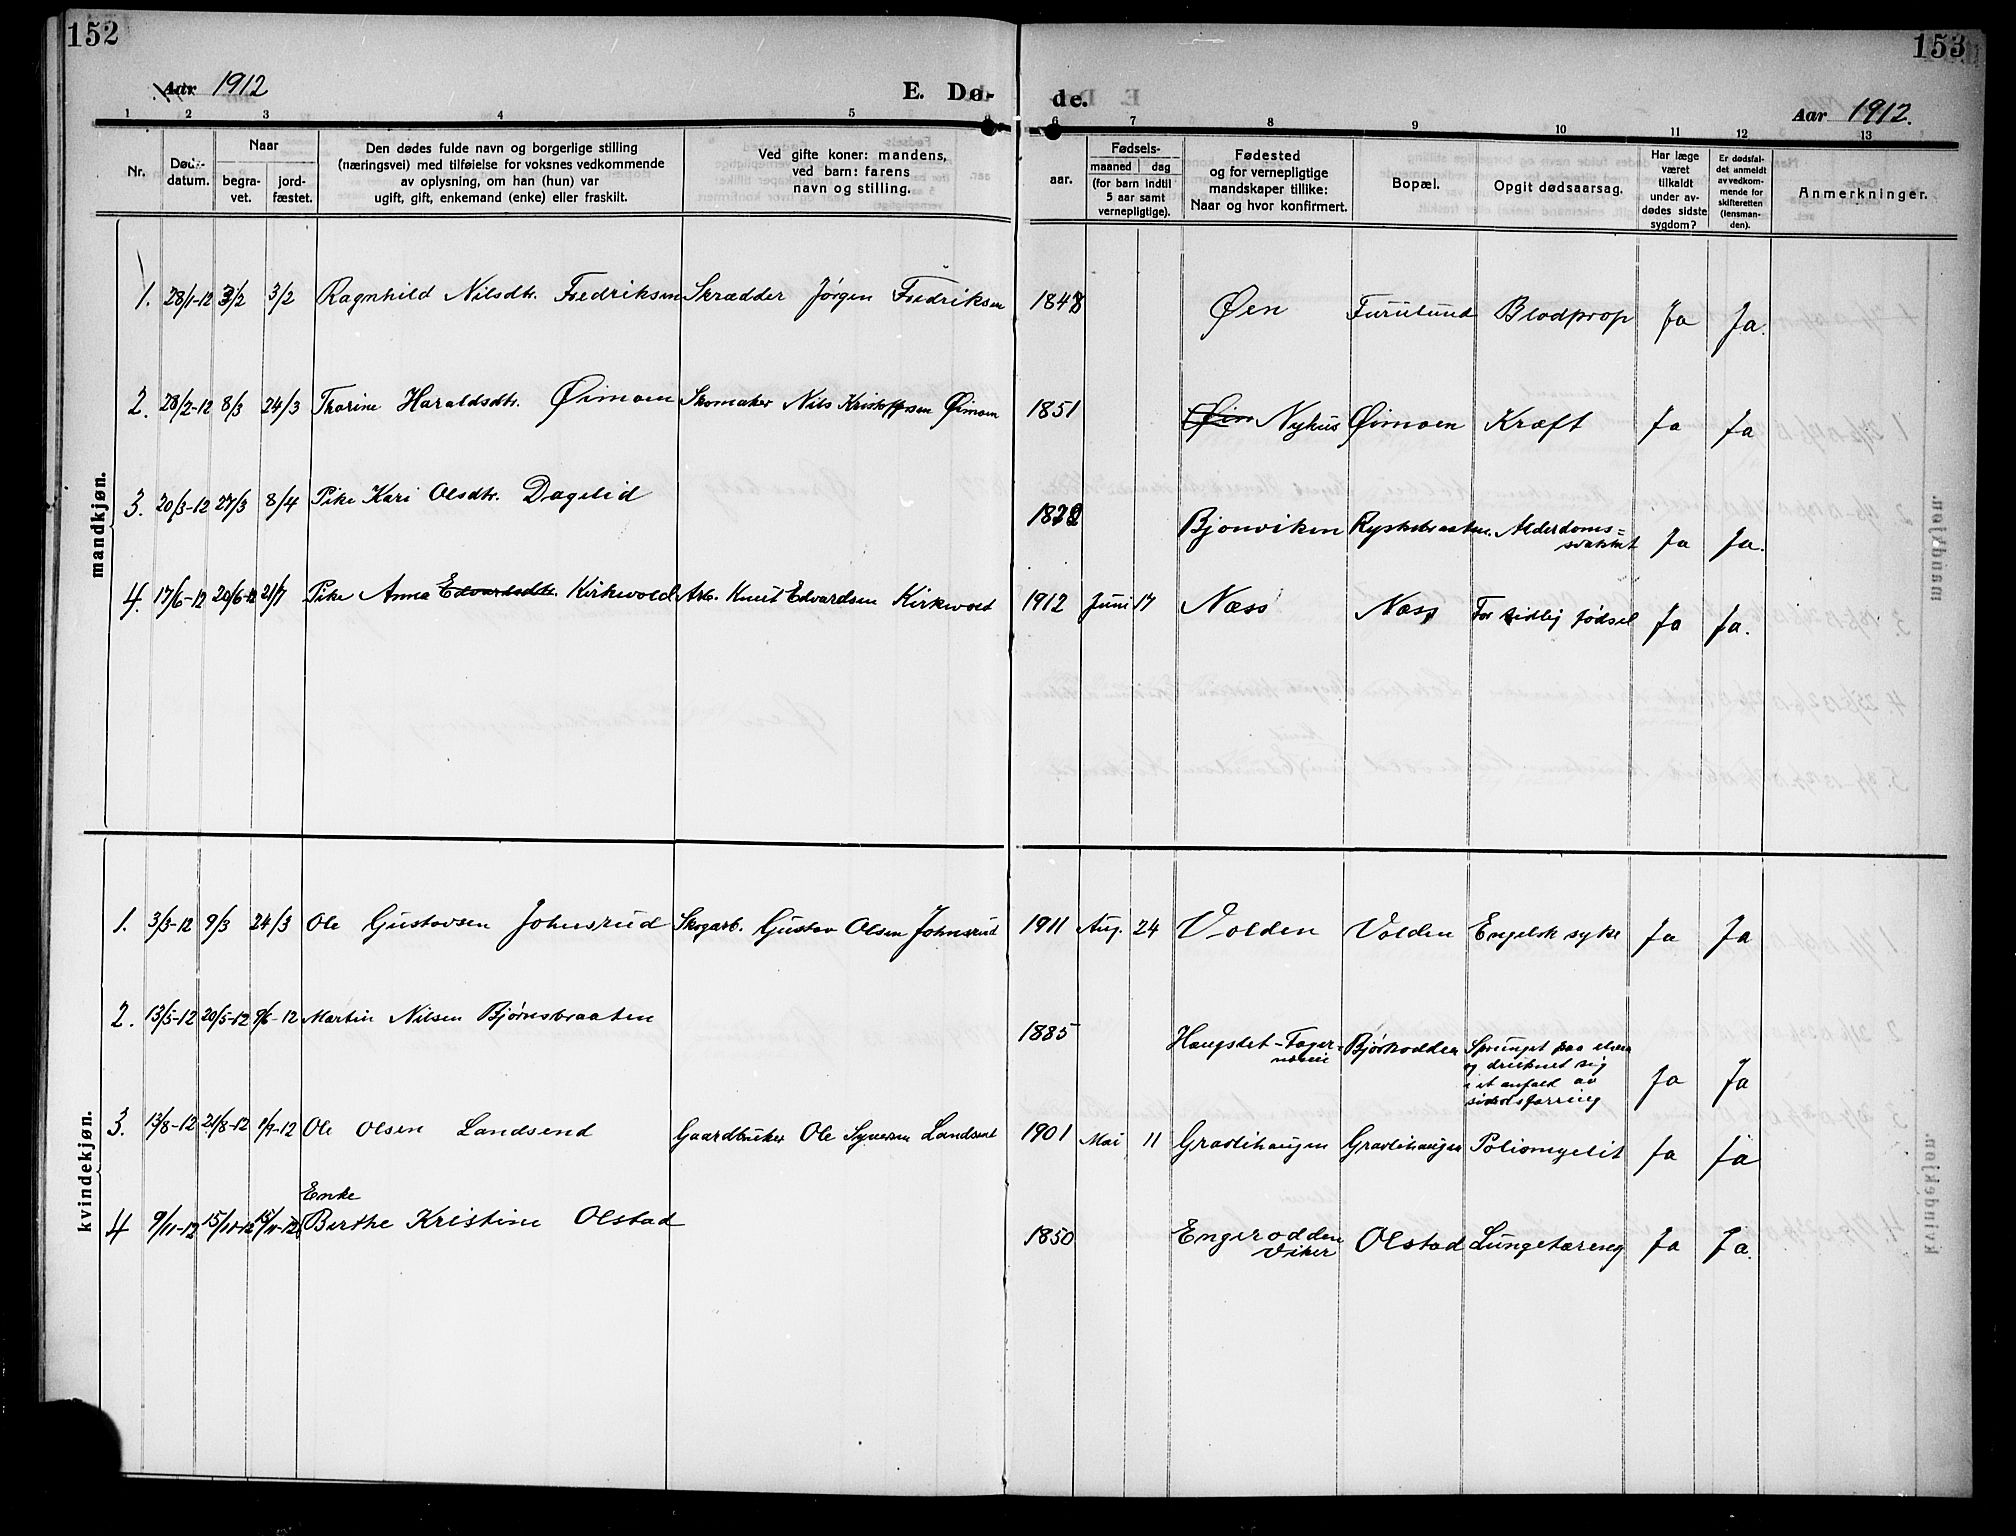 152
153
Aar 1912
E. Dø-
de.
Aar 1912.
1 2 3 4 5 6 6 7 8 9 10 11 12 13
Nr.
Døds-
datum.
Naar
begra-
vet.
jord-
fæstet.
Den dødes fulde navn og borgerlige stilling
(næringsvei) med tilføielse for voksnes vedkommende
av oplysning, om han (hun) var
ugift, gift, enkemand (enke) eller fraskilt.
Ved gifte koner: mandens,
ved barn: farens
navn og stilling.
aar.
Fødsels-
maaned dag
(for barn indtil
5 aar samt
vernepligtige).
Fødested
og for vernepligtige
mandskaper tillike:
Naar og hvor konfirmert.
Bopæl.
Opgit dødsaarsag.
Har læge
været
tilkaldt
under av-
dødes sidste
sygdom?
Er dødsfal-
det anmeldt
av vedkom-
mende for
skifteretten
(lensman-
den).
Anmerkninger.
mandkjøn.
1. 28/1-12 3/2 3/2 Ragnhild Nilsdtr. Fredriksen Skrædder Jørgen Fredriksen 1848 Øen Furulund Blodprop Ja Ja.
2. 28/2-12 8/3 24/3 Thorine Haraldsdtr. Øimoen Skomaker Nils Kristoffersen Øimoen 1851 Øim Nyhus Øimoen Kræft Ja Ja
3. 20/3-12 27/3 8/4 Pike Kari Olsdtr. Dagslid Bjonviken Alderdoms=
svakhet Ja Ja.
4. 17/6-12 20/6-12 21/7 Pike Anna Edvardsdtr. Kirkevold Arb. Knut Edvardsen Kirkevold 1912 Juni 17 Næss Næss For tidlig fødsel Ja Ja.
kvindekjøn.
1. 3/3-12 9/3 24/3 Ole Gustavsen Johnsrud Skogarb. Gustav Olsen Johnsrud 1911 Aug. 24 Volden Volden Engelsk syke Ja Ja
2. 13/5-12 20/5-12 9/6-12 Martin Nilsen Bjørnsbraaten 1885 Haugslet-Fager=
næseie Bjørkodden Sprunget paa elven
og druknet sig
i et anfald av
sindsforvirring Ja Ja
3. 13/8-12 21/8-12 1/9-12 Ole Olsen Landsend Gaardbruker Ole Syversen Landsend 1901 Mai 11 Gravlihaugen Gravlihaugen Poliomyelit Ja Ja
Enke
4 9/11-12 15/11-12 15/11-12 Berthe Kristine Olstad 1850 Engerodden
Viker Olstad Lungetæring Ja Ja.